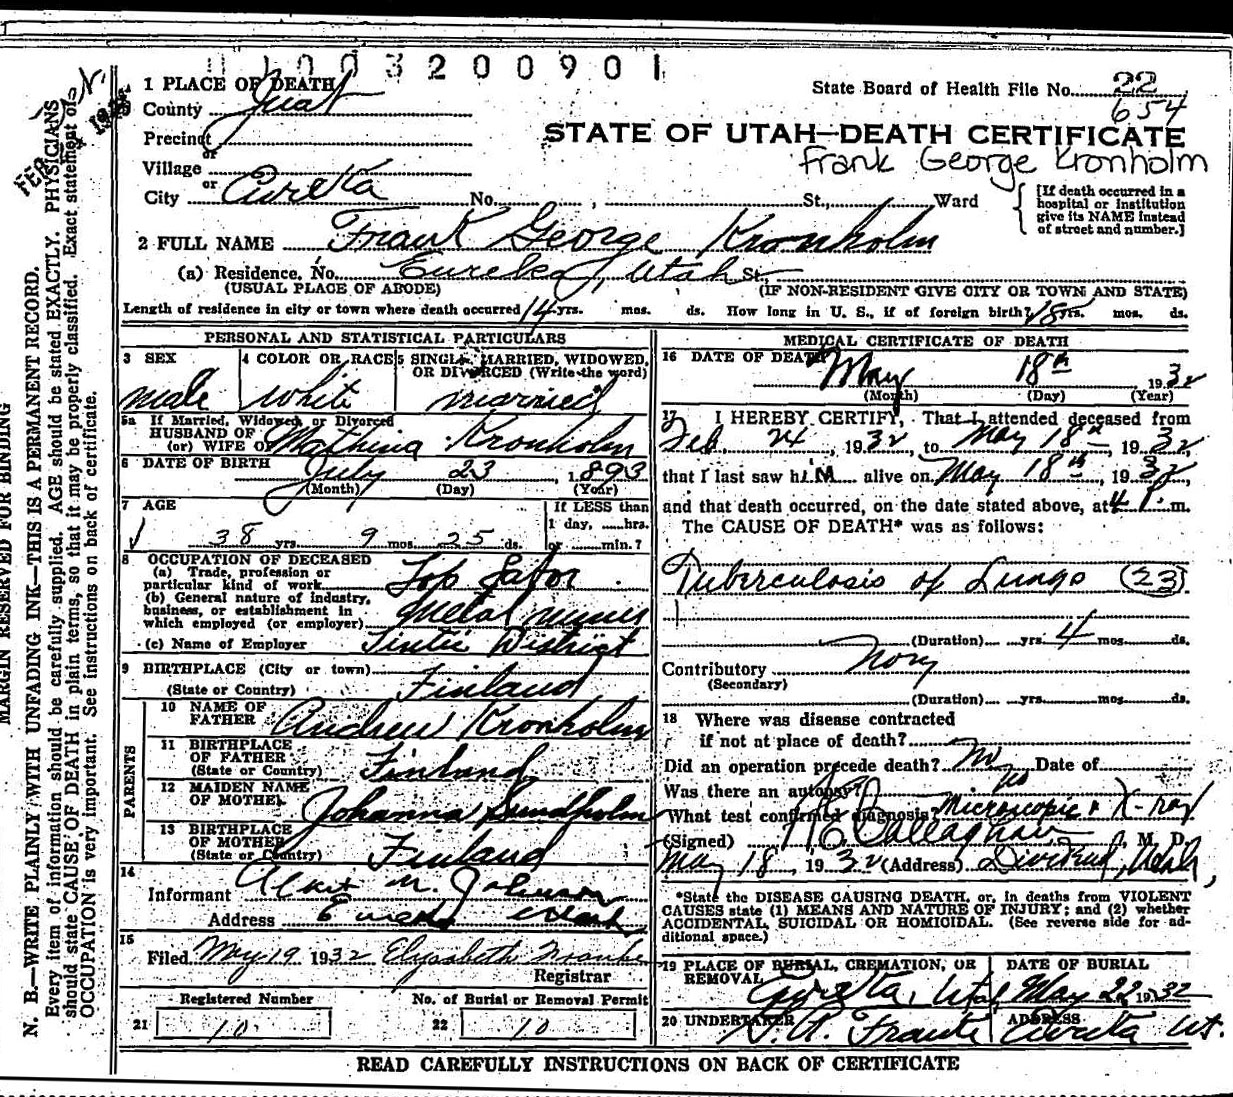 0 1 0 0 3 2 0 0 9 0 1
1 PLACE OF DEATH
State Board of Health File No. 22
654
County Juab
Precinct
STATE OF UTAH—DEATH CERTIFICATE
Frank George Kronholm
or
Village
or
City Eureka No. , St., Ward
[If death occurred in a
hospital or institution
give its NAME instead
of street and number.]
2 FULL NAME Frank George Kronholm
(a) Residence. No. Eureka, Utah St.,
(USUAL PLACE OF ABODE) (IF NON-RESIDENT GIVE CITY OR TOWN AND STATE)
Length of residence in city or town where death occurred 14 yrs. mos. ds. How long in U. S., if of foreign birth? 18 yrs. mos. ds.
PERSONAL AND STATISTICAL PARTICULARS
3 SEX 4 COLOR OR RACE 5 SINGLE, MARRIED, WIDOWED,
OR DIVORCED (Write the word)
male white married
5a If Married, Widowed, or Divorced
HUSBAND OF
(or) WIFE OF Mathina Kronholm
6 DATE OF BIRTH July 23, 1893
(Month) (Day) (Year)
7 AGE If LESS than
1 day, ......hrs.
38 yrs. 9 mos. 25 ds. or ......min.?
8 OCCUPATION OF DECEASED
(a) Trade, profession or
particular kind of work Top Labor
(b) General nature of industry,
business, or establishment in
which employed (or employer) Metal mines
(c) Name of Employer Tintic District
9 BIRTHPLACE (City or town)
(State or Country) Finland
PARENTS
10 NAME OF
FATHER Andrew Kronholm
11 BIRTHPLACE
OF FATHER
(State or Country) Finland
12 MAIDEN NAME
OF MOTHER Johanna Sundholm
13 BIRTHPLACE
OF MOTHER
(State or Country) Finland
14
Informant M. Johnson
Address Eureka Utah
15
Filed May 19 1932 Elysabeth
Registrar
Registered Number No. of Burial or Removal Permit
21 10 22 10
MEDICAL CERTIFICATE OF DEATH
16 DATE OF DEATH
May 18th, 1932
(Month) (Day) (Year)
17 I HEREBY CERTIFY, That I attended deceased from
Feb. 24, 1932, to May 18th, 1932,
that I last saw him alive on May 18th, 1932,
and that death occurred, on the date stated above, at 4 P. m.
The CAUSE OF DEATH* was as follows:
Tuberculosis of Lungs (23)
(Duration) yrs. 4 mos. ds.
Contributory
(Secondary)
(Duration) yrs. mos. ds.
18 Where was disease contracted
if not at place of death?
Did an operation precede death? No Date of
Was there an autopsy? no
What test confirmed diagnosis? Microscopic & X-ray
(Signed) Callaghan, M. D.
May 18, 1932 (Address) Dividend, Utah,
*State the DISEASE CAUSING DEATH, or, in deaths from VIOLENT
CAUSES state (1) MEANS AND NATURE OF INJURY; and (2) whether
ACCIDENTAL, SUICIDAL OR HOMICIDAL. (See reverse side for ad-
ditional space.)
19 PLACE OF BURIAL, CREMATION, OR
REMOVAL DATE OF BURIAL
Eureka, Utah May 22 1932
20 UNDERTAKER ADDRESS
Eureka Ut.
READ CAREFULLY INSTRUCTIONS ON BACK OF CERTIFICATE
MARGIN RESERVED FOR BINDING
N. B.—WRITE PLAINLY WITH UNFADING INK—THIS IS A PERMANENT RECORD.
Every item of information should be carefully supplied. AGE should be stated EXACTLY. PHYSICIANS
should state CAUSE OF DEATH in plain terms, so that it may be properly classified. Exact statement of
OCCUPATION is very important. See instructions on back of certificate.